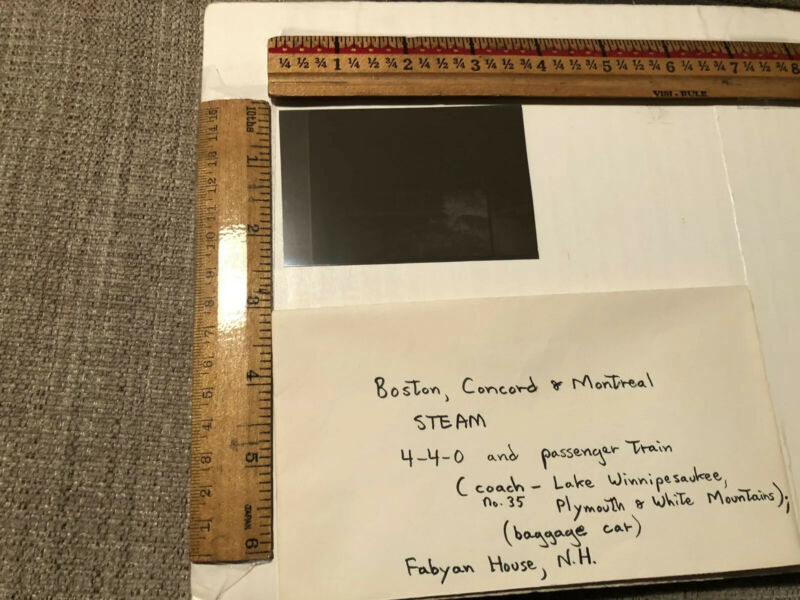 ¼ ½ ¾ 1 ¼ ½ ¾ 2 ¼ ½ ¾ 3 ¼ ½ ¾ 4 ¼ ½ ¾ 5 ¼ ½ ¾ 6 ¼ ½ ¾ 7 ¼ ½ ¾ 8
VISI-RULE
10ths 1 2 3 4 5 6
JAPAN
15 14 13 12 11 10 9 8 7 6 5 4 3 2 1
Boston, Concord & Montreal
STEAM
4-4-0 and passenger Train
(coach - Lake Winnipesaukee,
No. 35 Plymouth & White Mountains);
(baggage car)
Fabyan House, N.H.